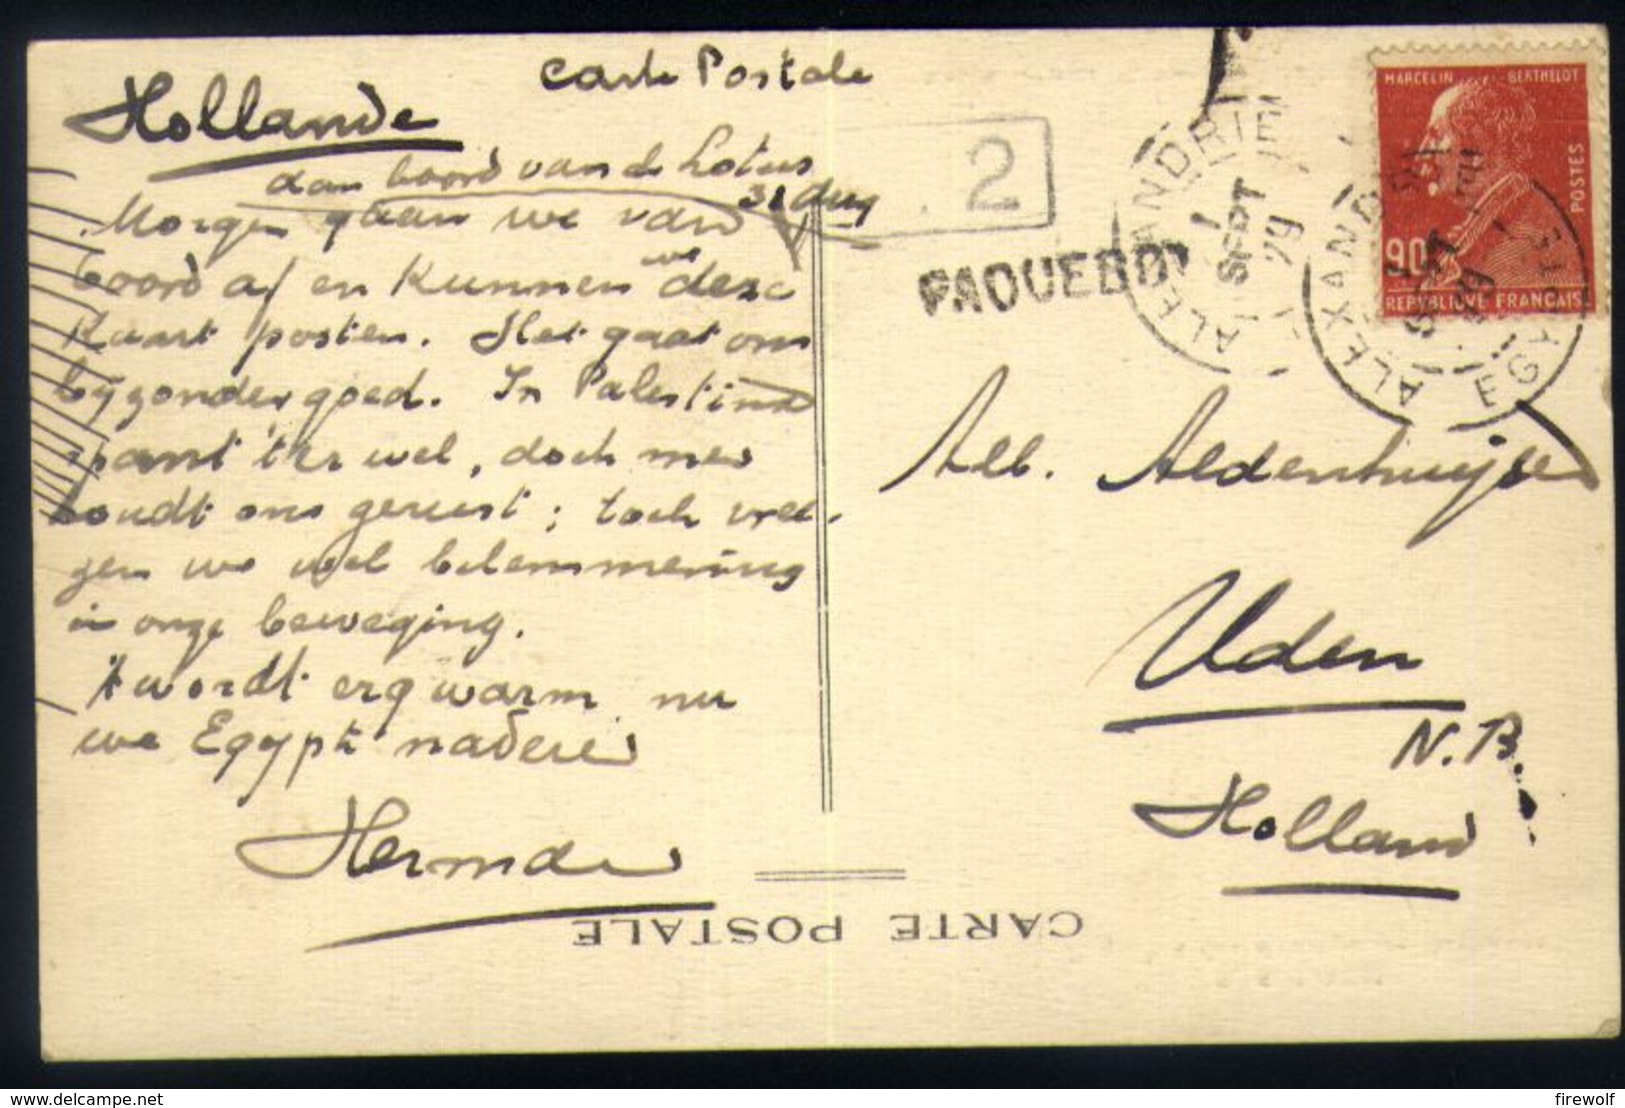 Carte Postale
Hollande
aan boord van de Lotus
31 Aug
Morgen gaan we van
boord af en kunnen we deze
kaart posten. Het gaat ons
bijzonder goed. In Palestina
spant 't er wel, doch men
houdt ons gerust; toch vree-
zen we wel belemmering
in onze beweging.
't wordt erg warm nu
we Egypte naderen
Herman
2
PAQUEBOT
ALEXANDRIE
1 SEPT 29
ALEXANDRIE
EGYPTE
MARCELIN BERTHELOT
POSTES
90
REPUBLIQUE FRANCAISE
Alb. Aldenhuijsen
Uden
N.B.
Holland
CARTE POSTALE
https://www.delcampe.net
firewolf